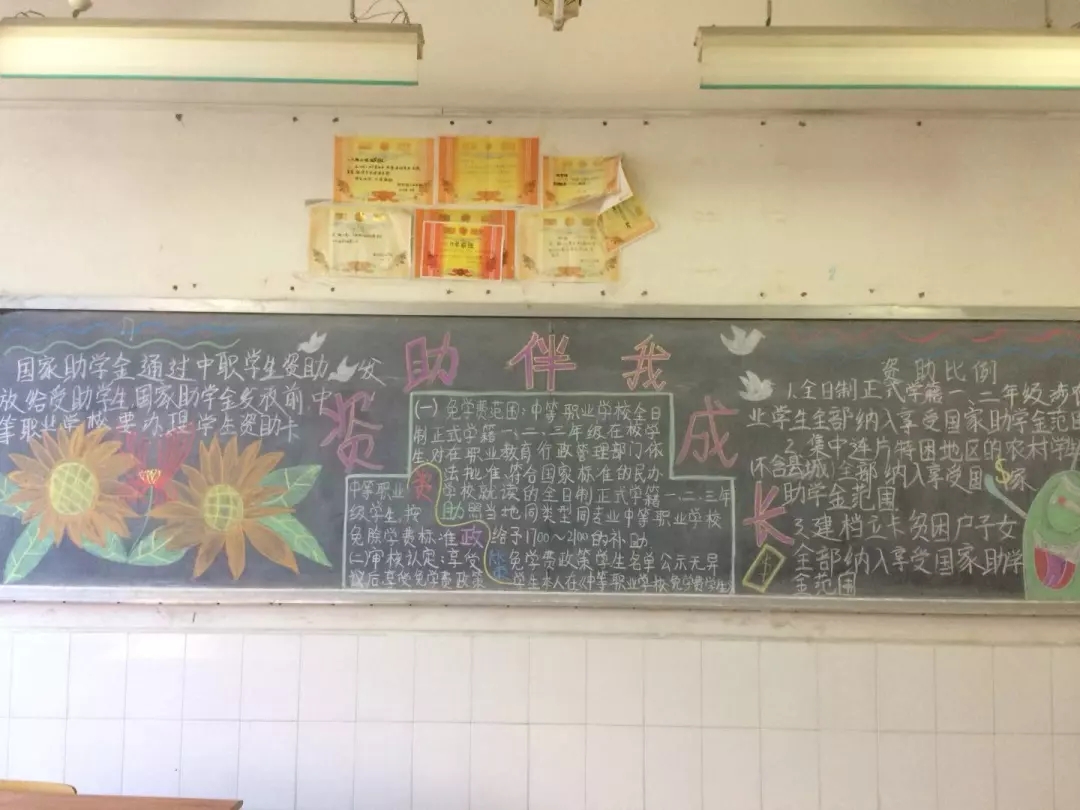 资助伴我成长
国家助学金通过中职学生资助
放给受助学生,国家助学金发放前中
等职业学校要办理学生资助卡
(一)免学费范围:中等职业学校全日
制正式学籍一、二、三年级在校学
生对在职业教育行政管理部门依
法批准,符合国家标准的民办
中等职业学校就读的全日制正式学籍一、二、三年
级学生,按照当地同类型同专业中等职业学校
免除学费标准给予1700~2100的补助
(二)审核认定:享受免学费政策学生名单公示无异
议后,享受免学费政策学生本人在《中等职业学校免学费学生
资助政策
资助比例
1.全日制正式学籍一、二年级涉农
业学生全部纳入享受国家助学金范围
2.集中连片特困地区的农村学生
(不含县城)全部纳入享受国家
助学金范围
3.建档立卡贫困户子女
全部纳入享受国家助学
金范围